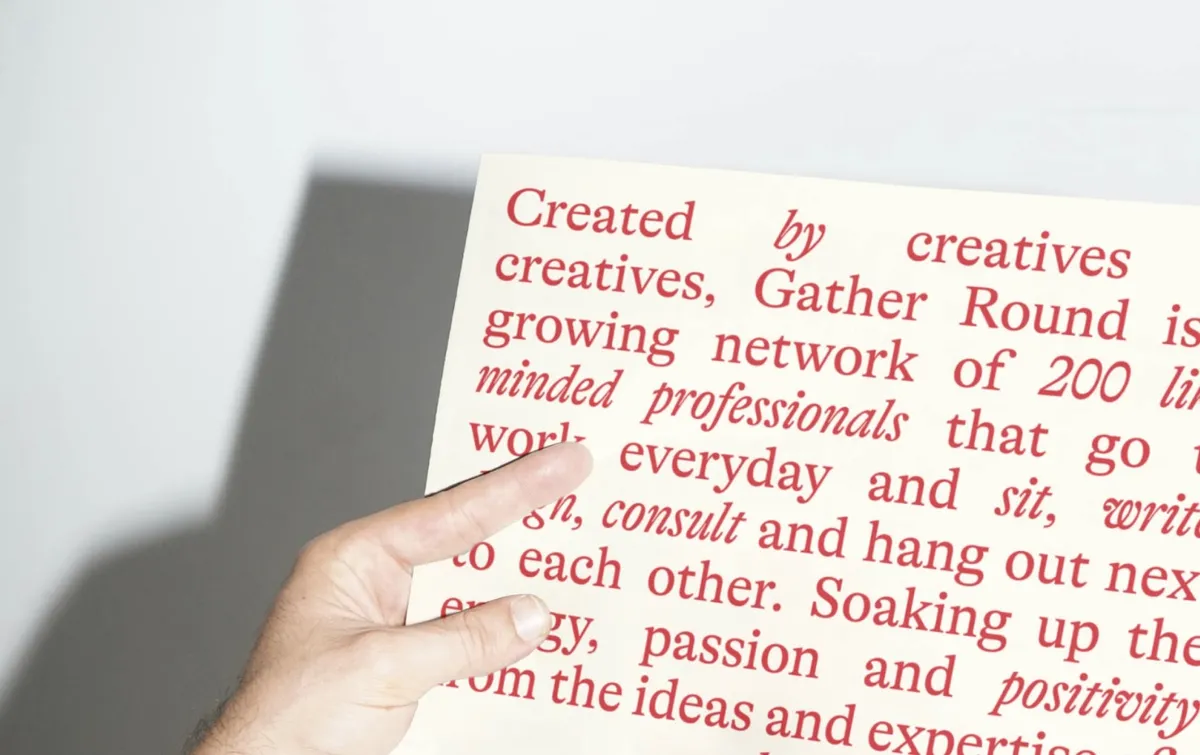 Created by creatives
creatives, Gather Round is
growing network of 200
minded professionals that go
work everyday and sit,
consult and hang out
to each other. Soaking up the
passion and positivity
the ideas and